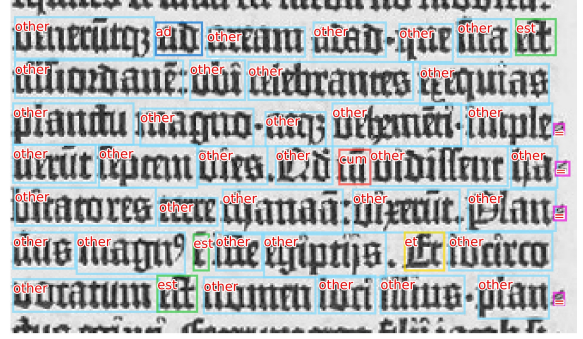 other ad other other other other est
venerūtqꝫ ad aream atad·que sita est
other other other other
ubi celebrantes exequias
other other other other other
planctu magno·atqꝫ vehemēti·imple
other other other other cum other other
uerūt septem dies. Qd cū vidissent ha
other other other other other
bitatores terre chanaā: dixerūt. Plan
other other est other other et other
ctus magnꝰ ē iste egiptijs. Et idcirco
other est other other other other
vocatum est nomen loci illius·plan